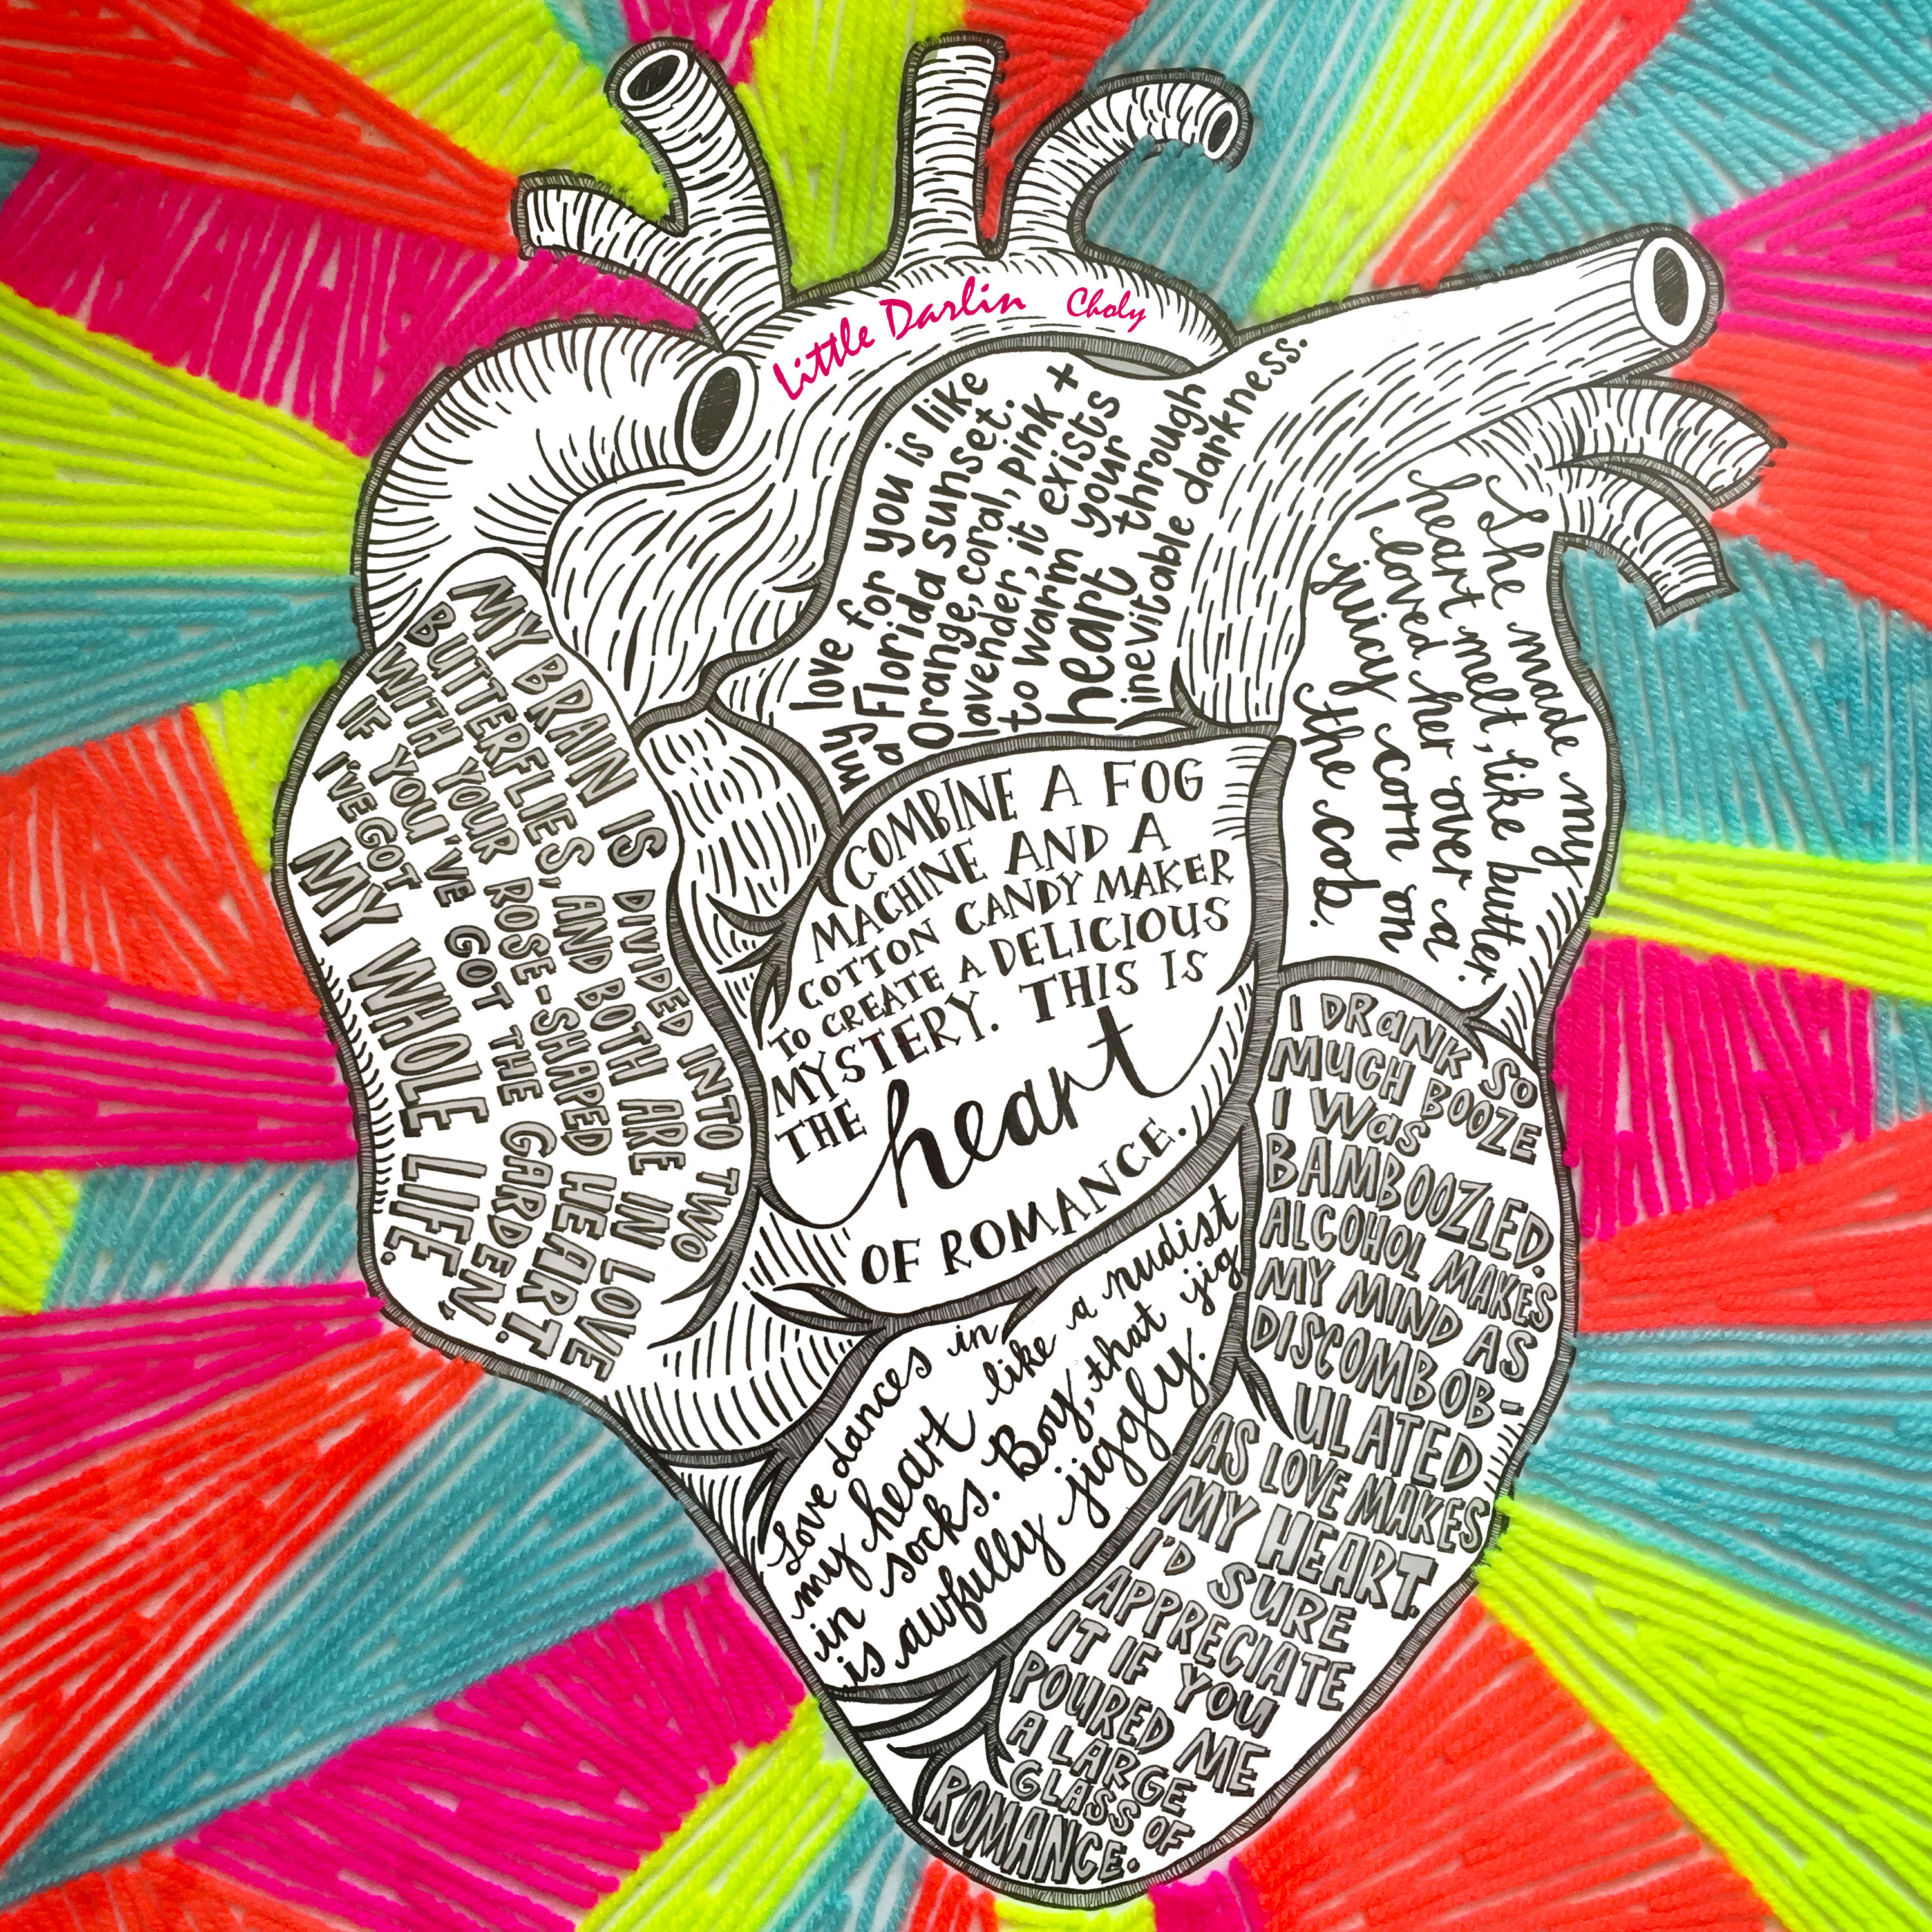 Little Darlin Choly
my love for you is like
a Florida sunset.
Orange, coral, pink +
lavender, it exists
to warm your
heart through
inevitable darkness.
She made my
heart melt, like butter.
I loved her over a
juicy corn on
the cob.
MY BRAIN IS DIVIDED INTO TWO
BUTTERFLIES, AND BOTH ARE IN LOVE
WITH YOUR ROSE-SHAPED HEART.
IF YOU'VE GOT THE GARDEN,
I'VE GOT
MY WHOLE LIFE.
COMBINE A FOG
MACHINE AND A
COTTON CANDY MAKER
TO CREATE A DELICIOUS
MYSTERY. THIS IS
THE heart
OF ROMANCE.
I DRaNK SO
MUCH BOOZE
I WaS
BAMBOOZLED.
ALCOHOL MAKES
MY MIND AS
DISCOMBOB-
ULATED
AS LOVE MAKES
MY HEART.
I'D SURE
APPRECIATE
IT IF YOU
POURED ME
A LARGE
GLASS OF
ROMANCE.
Love dances in
my heart like a nudist
in socks. Boy, that jig
is awfully jiggly.